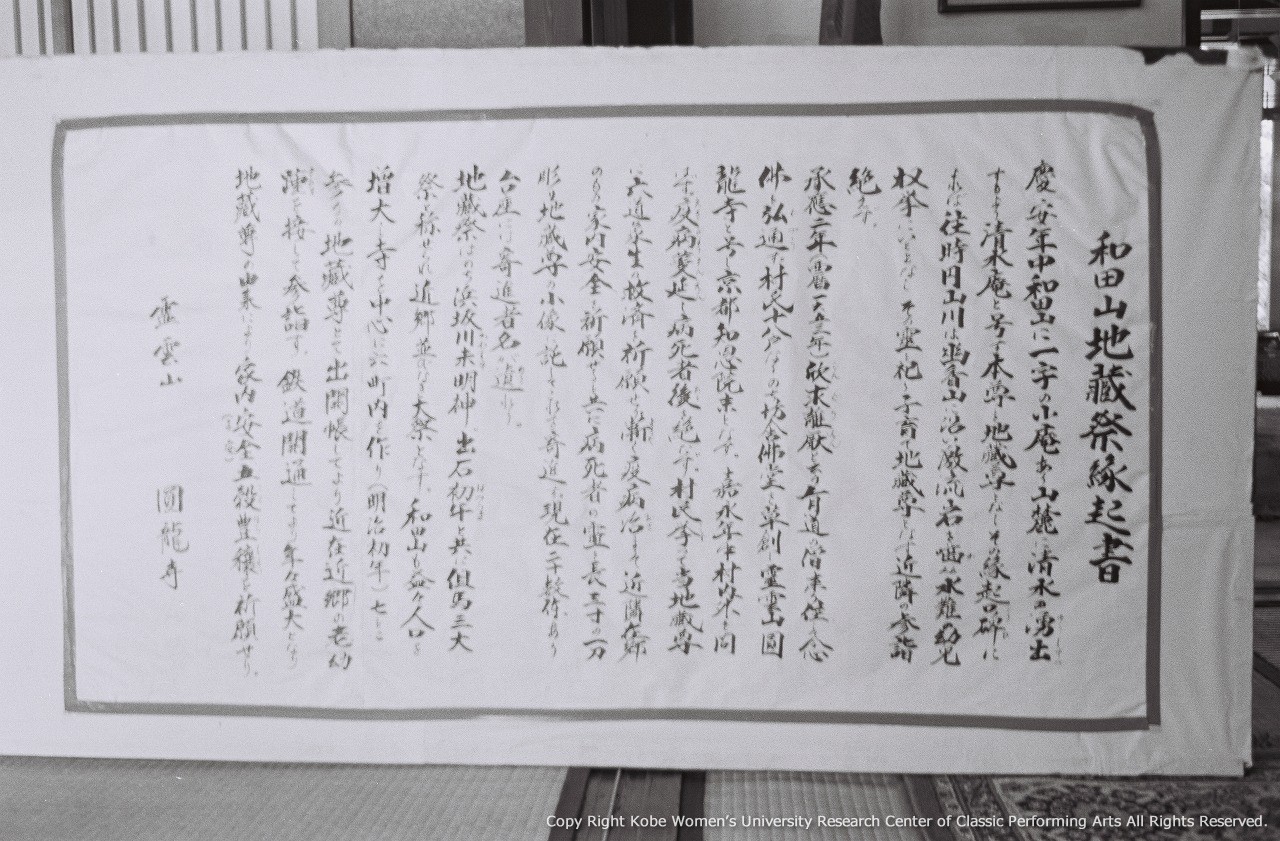 和田山地蔵祭縁起書
慶安年中和田山に一宇の小庵あり山麓に清水の湧出
するより清水庵と号す本尊を地蔵尊となしその縁起碑に
往時円山川は 山に沿い激流岩を噛み水難幼児
枚挙にいとまなし その霊を祀り子育て地蔵尊となす近隣の参詣
絶えず。
承應二年(西暦一六五三年)欣求離厭 道の僧来住し念
佛を弘通す村民十八戸 坊舎佛堂を草創し霊雲山圓
龍寺と号し京都知恩院末となす。嘉永年中村内外を問
はず疫病蔓延し病死者後を絶たず。村民挙って当地蔵尊
に六道衆生の救済を祈願せり漸く疫病治まりて近隣在郷
のもの家内安全を祈願せしと共に病死者の霊を長三寸の一刀
彫り地蔵尊の小像に託されて寄進す現在二千数体あり
台座に寄進者名が遺れり。
地蔵祭はのち浜坂川末明神、出石初午と共に但馬三大
祭と称せられ近郷並びなき大祭となす。和田山も益々人口を
増大し寺を中心に六町内を作り(明治初年)
地蔵尊として出開帳してより近在近郷の老幼
踵を接して参詣す、鉄道開通してより年々盛大となり
地蔵尊の由来により家内安全五穀豊穣を祈願せり。
霊雲山 圓龍寺
Copy Right Kobe Women's University Research Center of Classic Performing Arts All Rights Reserved.